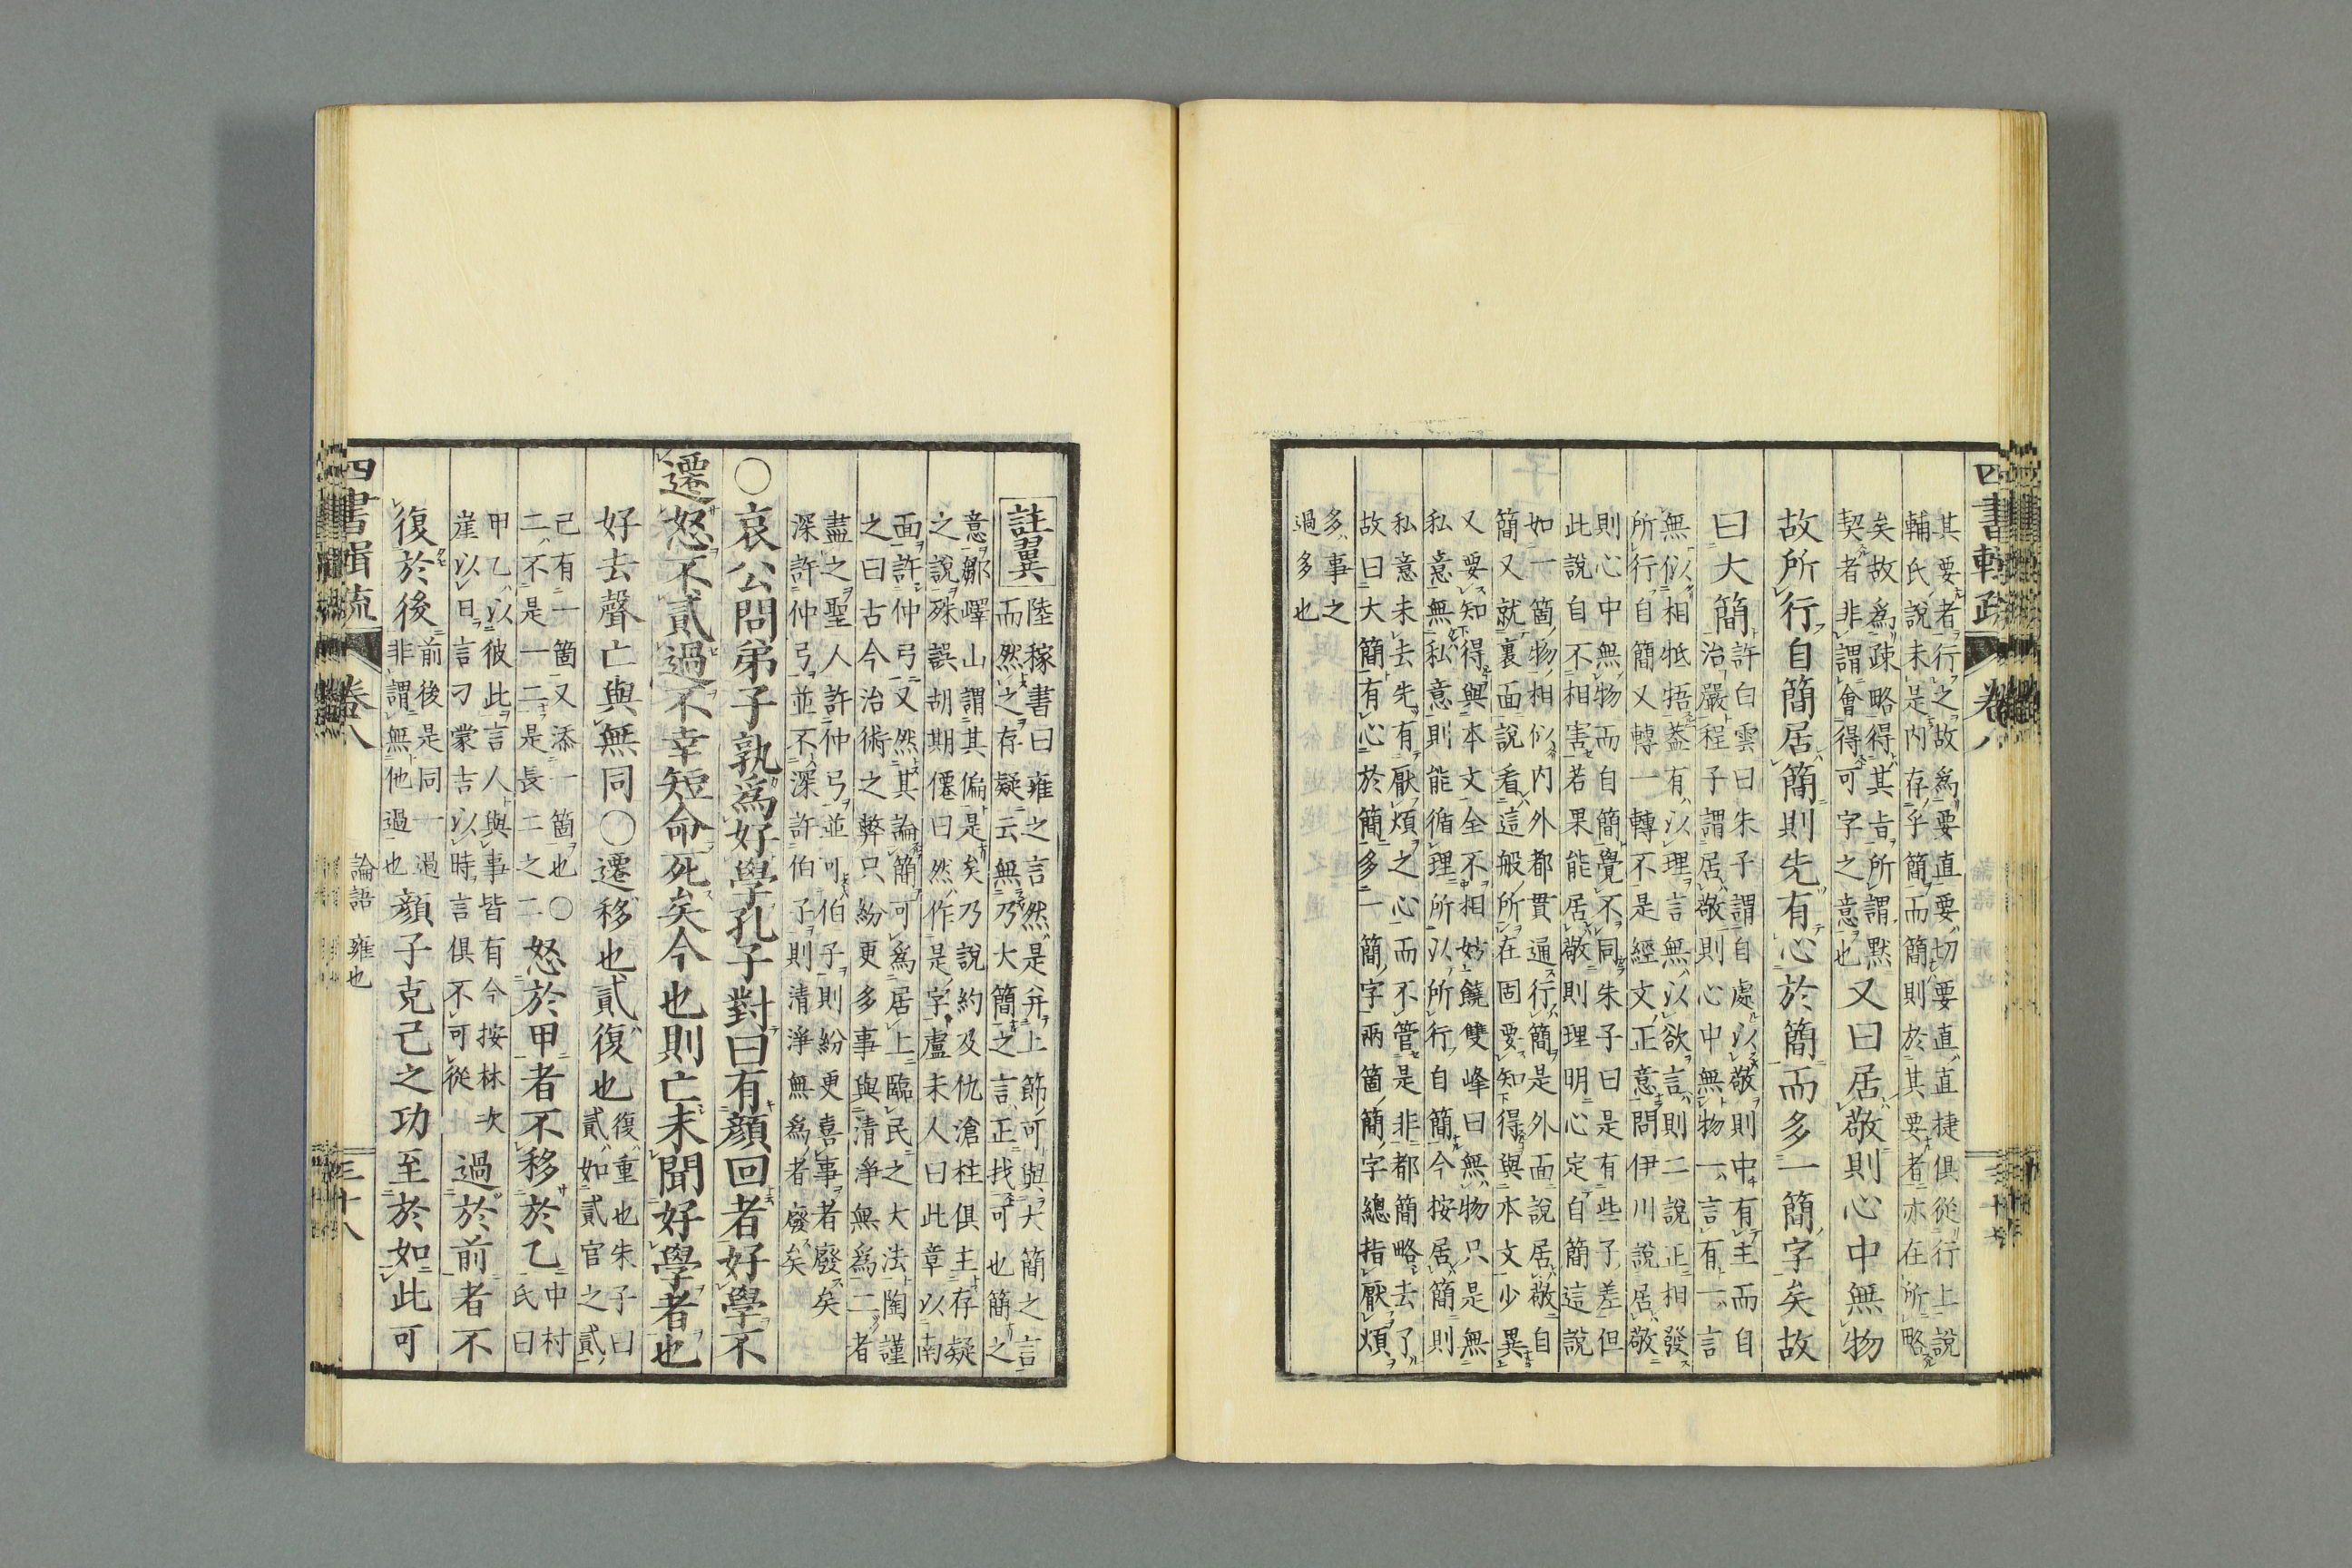 四書輯疏
卷八
其要者行之故爲要直要切要直直捷俱從行上說
輔氏說未是内存乎簡而簡則於其要者亦在所略
矣故爲疎略得其旨所謂默
契者非謂會得可字之意也
又曰居敬則心中無物
故所行自簡居簡則先有心於簡而多一簡字矣故
曰大簡
許白雲曰朱子謂自處以敬則中有主而自
治嚴程子謂居敬則心中無物一言有一言
無似相牴捂葢有以理言無以欲言則二說正相發
所行自簡又轉一轉不是經文正意問伊川說居敬
則心中無物而自簡覺不同朱子曰是有些子差但
此說自不相害若果能居敬則理明心定自簡這說
如一箇物相似内外都貫通行簡是外面說居敬自
簡又就裏面說看這般所在固要知得與本文少異
又要知得與本文全不相妙饒雙峰曰無物只是無
私意無私意則能循理所以所行自簡今按居簡則
私意未去先有厭煩之心而不管是非都簡略去了
故曰大簡有心於簡多一簡字兩箇簡字總指厭煩
多事之
過多也
註翼
陸稼書曰雍之言然是并上節可與大簡之言
而然之存疑云無乃大簡之言正找可也簡之
意鄒嶧山謂其偏是矣乃說約及仇滄柱俱主存疑
之說殊誤胡期僊曰然作是字盧未人曰此章以南
面許仲弓又然其論簡可爲居上臨民之大法陶謹
之曰古今治術之弊只紛更多事與清淨無爲二者
盡之聖人許仲弓並可伯子則紛更喜事者廢矣
深許仲弓並不深許伯子則清淨無爲者廢矣
○哀公問弟子孰爲好學孔子對曰有顏回者好學不
遷怒不貳過不幸短命死矣今也則亡未聞好學者也
好去聲亡與無同○遷移也貳復也
復重也朱子曰
貳如貳官之貳
己有一箇又添一箇也○
二不是一二是長二之二
怒於甲者不移於乙
中村
氏曰
甲乙以彼此言人與事皆有今按林次
崖以日言刁蒙吉以時言俱不可從
過於前者不
復於後
前後是同一過
非謂無他過也
顏子克己之功至於如此可
四書輯疏
卷八
論語
雍也
三十八